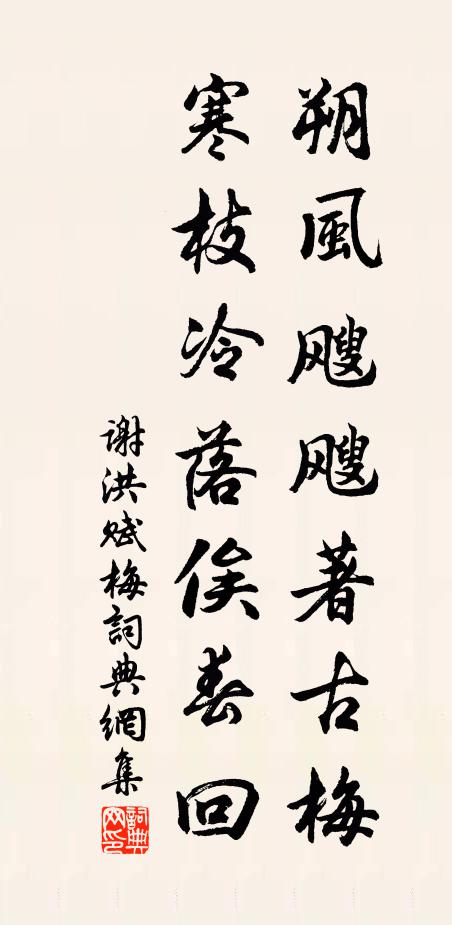 朔風颼颼著古梅
寒枝冷落俟春回
謝洪賦梅詞典網集
詞典
网印